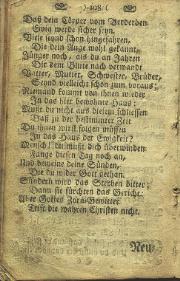 Daß dein Cörper vom Verderben
Ewig werde sicher seyn.
Viele sind schon hingefahren,
Die dein Auge wohl gekannt,
Jünger noch, als du an Jahren
Die dem Blute nach verwandt
Vatter, Mutter, Schwester, Brüder,
Seynd vielleicht schon zum voraus;
Niemand kommt von ihnen wieder
In das hier bewohnte Haus:
Mußt du nicht aus diesem schliessen
Daß zu der bestimmten Zeit
Du ihnen wirst folgen müssen
In das Haus der Ewigkeit?
Mensch! du mußt dich überwinden
Fange diesen Tag noch an,
Und beweine deine Sünden,
Die du wider Gott gethan.
Sündern wird das Sterben bitter;
Dann sie fürchten das Gericht.
Aber Gottes Zorn-Gewitter
Trift die wahren Christen nicht.